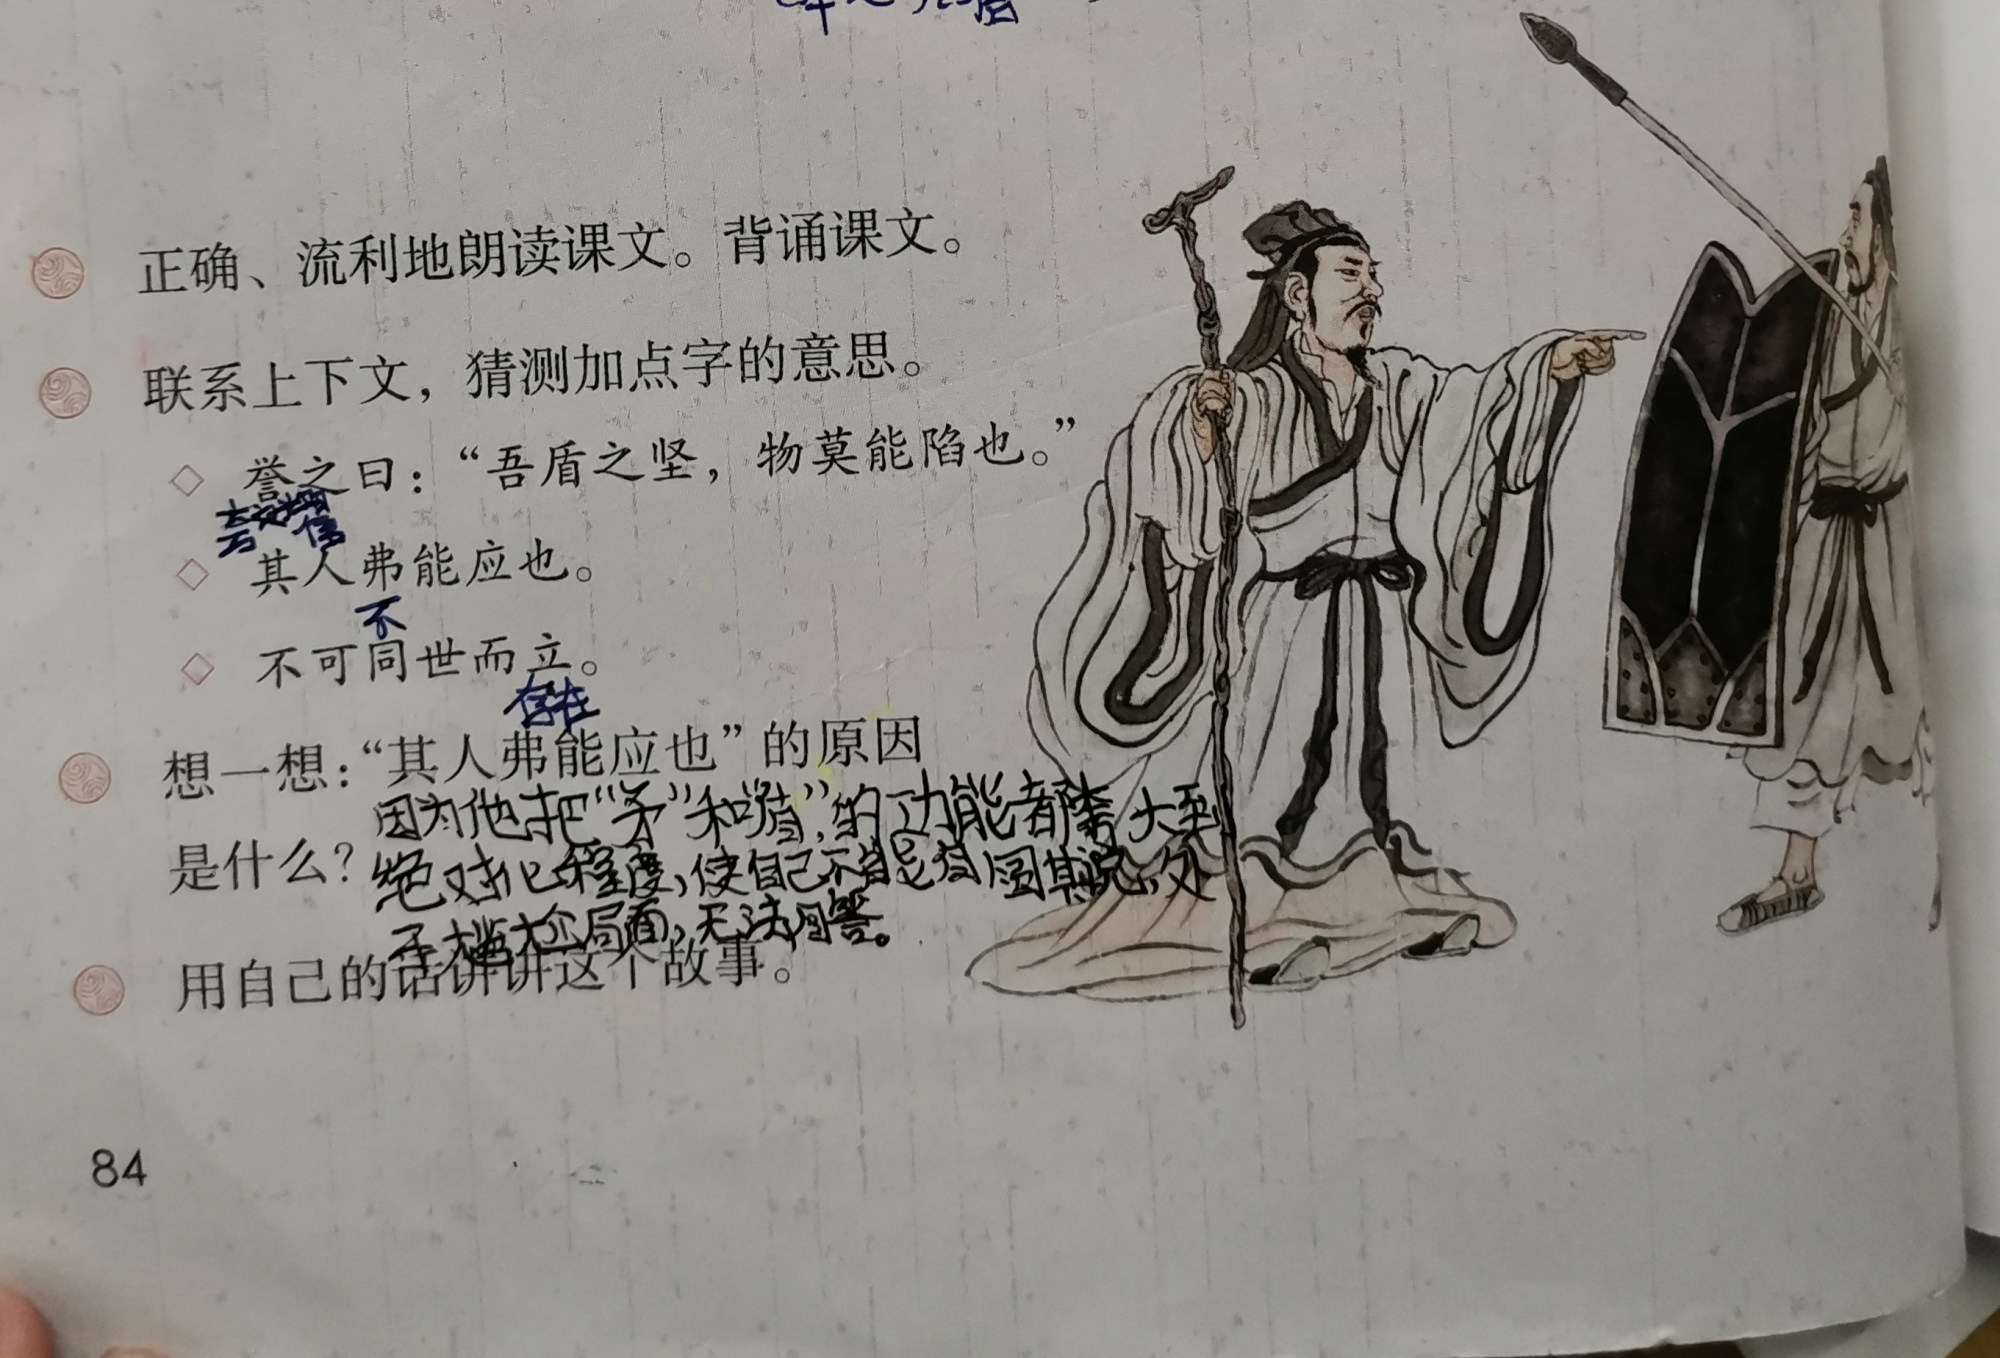 正确、流利地朗读课文。背诵课文。
联系上下文，猜测加点字的意思。
誉之曰：“吾盾之坚，物莫能陷也。”
其人弗能应也。
不
不可同世而立。
存在
想一想：“其人弗能应也”的原因
是什么？
因为他把“矛”和“盾”的功能都夸大到
绝对化程度，使自己不能自圆其说，处
于尴尬局面，无法回答。
用自己的话讲讲这个故事。
84